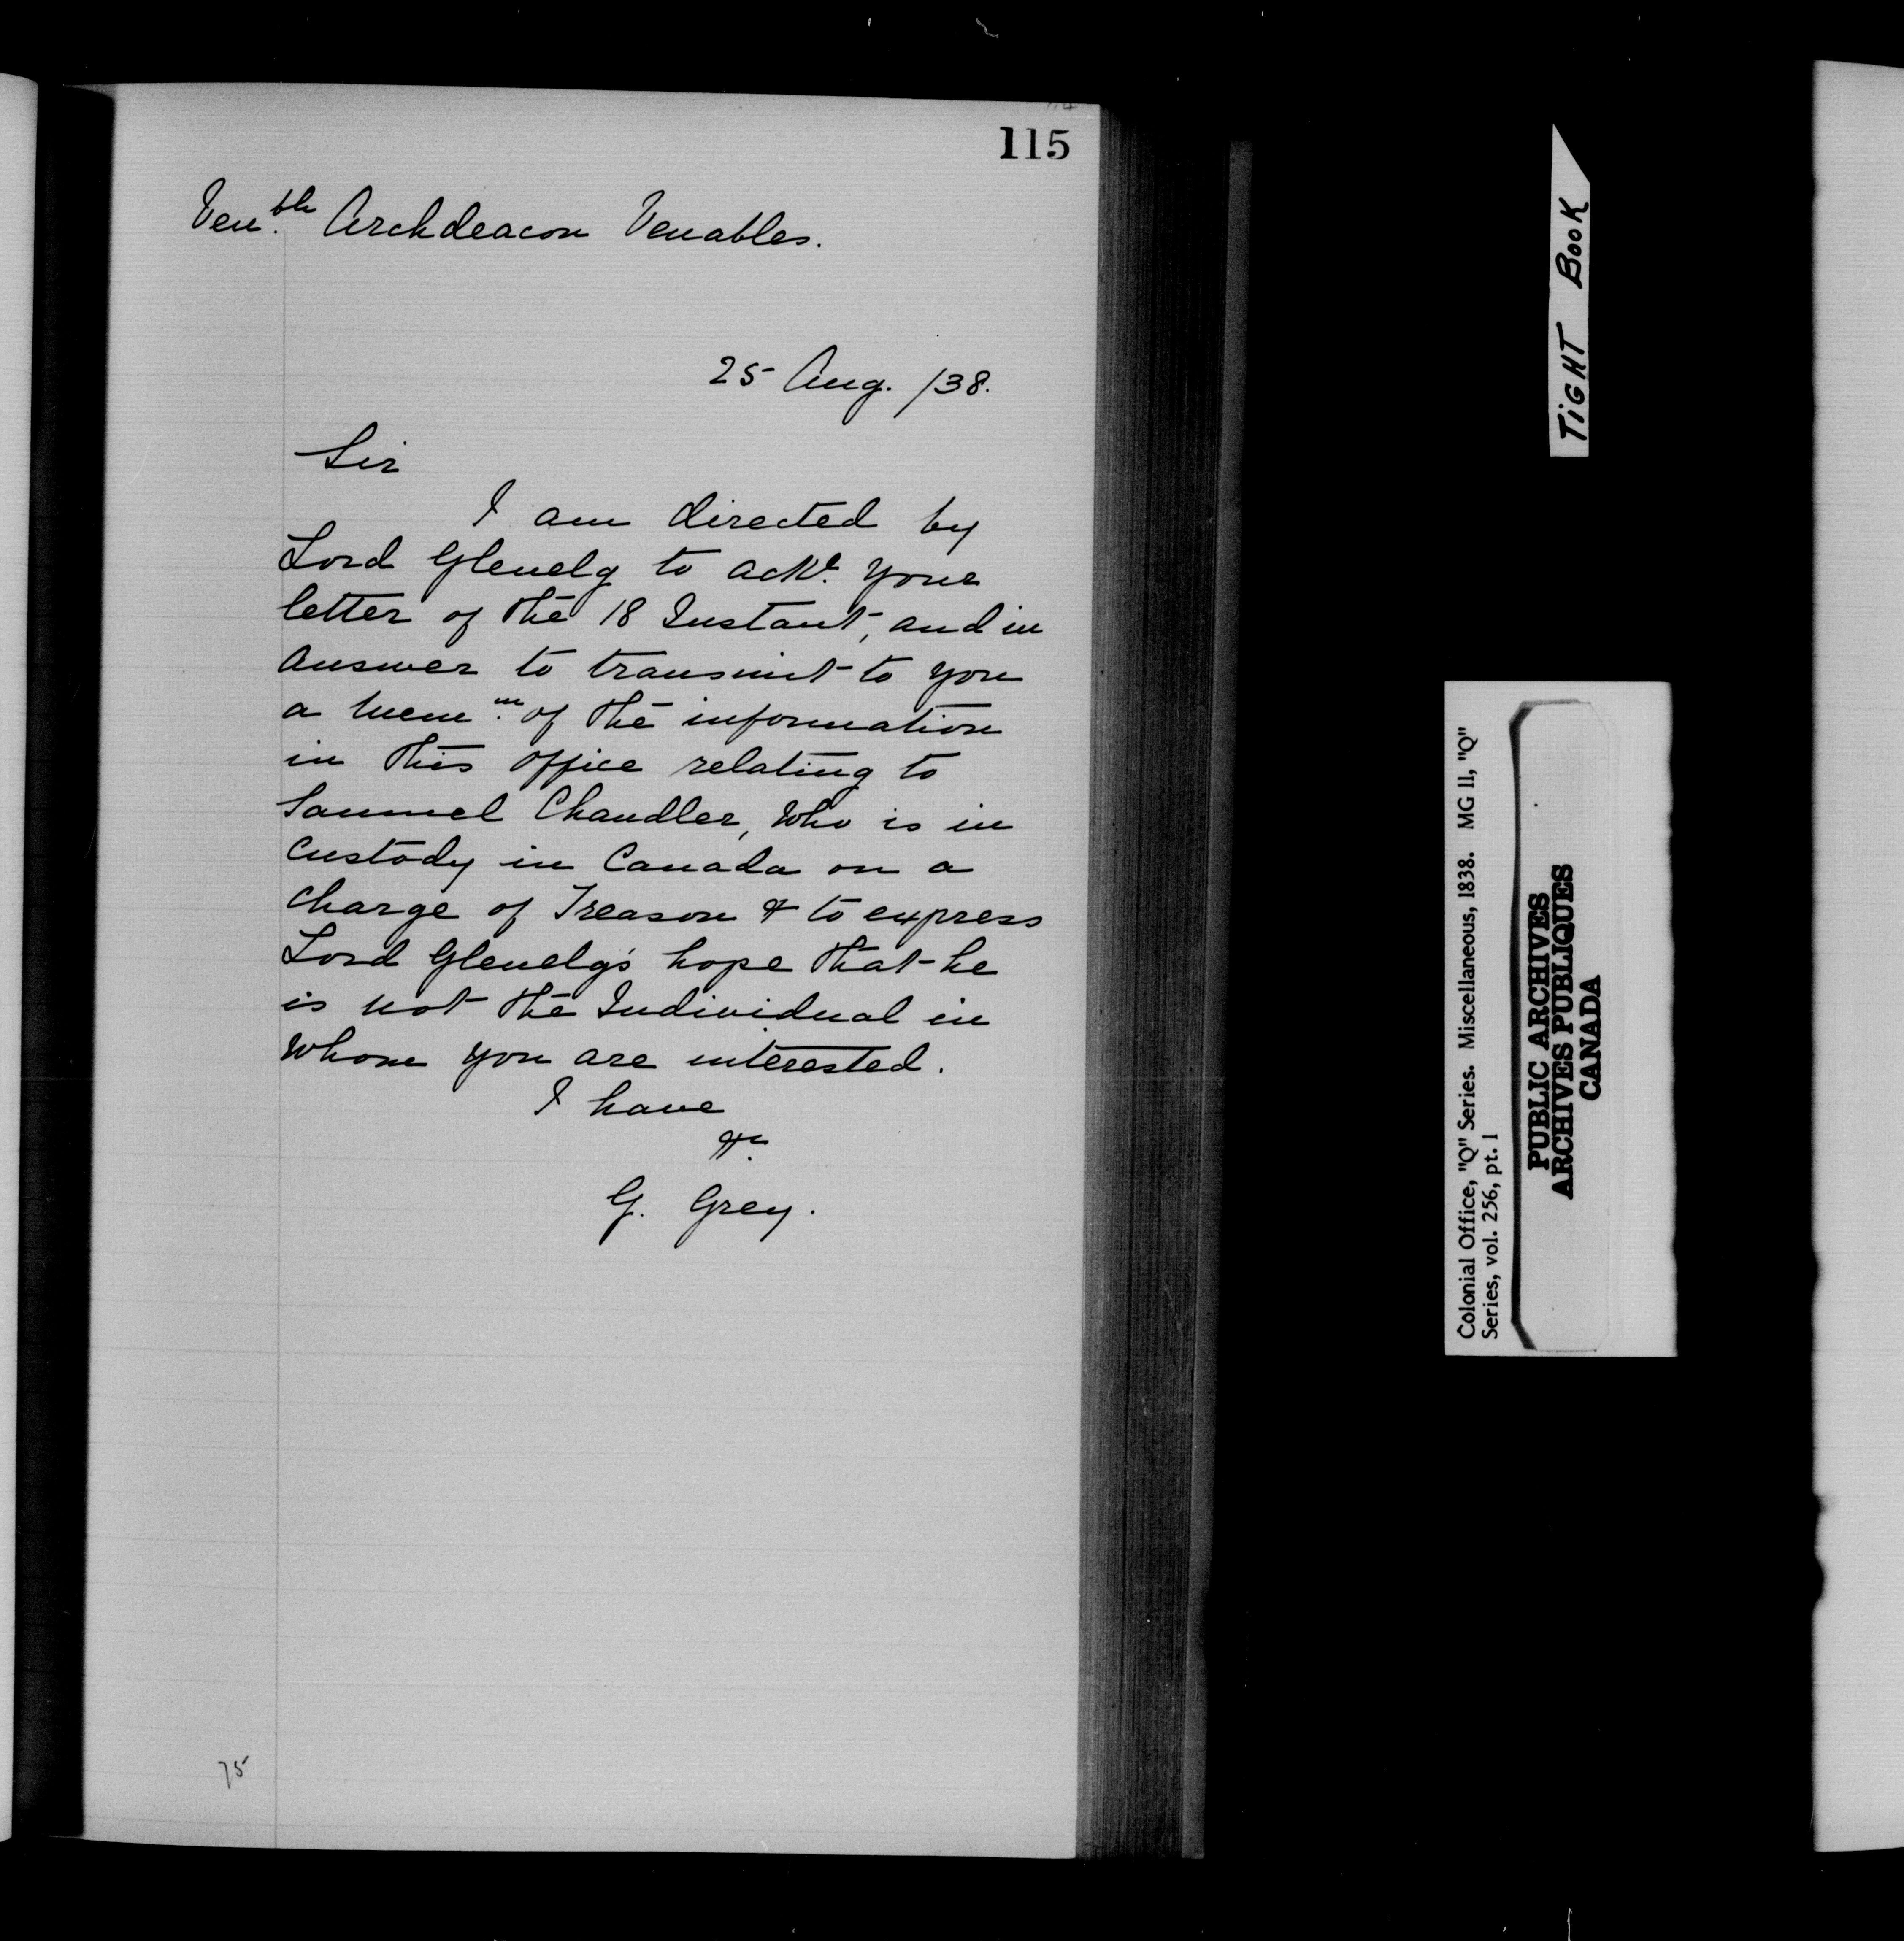 115
Ven.ble Archdeacon Venables.
25 Aug. /38.
Sir
I am directed by
Lord Glenelg to acke. your
letter of the 18 Instant, and in
answer to transmit to you
a Mem.m of the information
in this office relating to
Samuel Chandler, who is in
custody in Canada on a
charge of Treason & to express
Lord Glenelg's hope that he
is not the Individual in
whom you are interested.
I have
&c.
G. Grey.
75
TIGHT BOOK
Colonial Office, "Q" Series. Miscellaneous, 1838. MG 11, "Q"
Series, vol. 256, pt. 1
PUBLIC ARCHIVES
ARCHIVES PUBLIQUES
CANADA